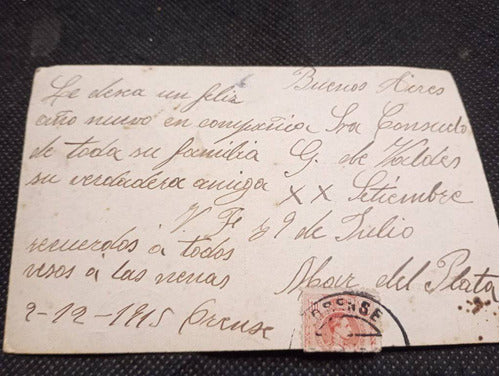 Le desea un feliz
año nuevo en compañia
de toda su familia
su verdadera amiga
V F
recuerdos á todos
vesos á las nenas
2-12-1915 Orense
Buenos Aires
Sra Consuelo
G. de Valdes
XX Setiembre
y 9 de Julio
Mar del Plata
ORENSE